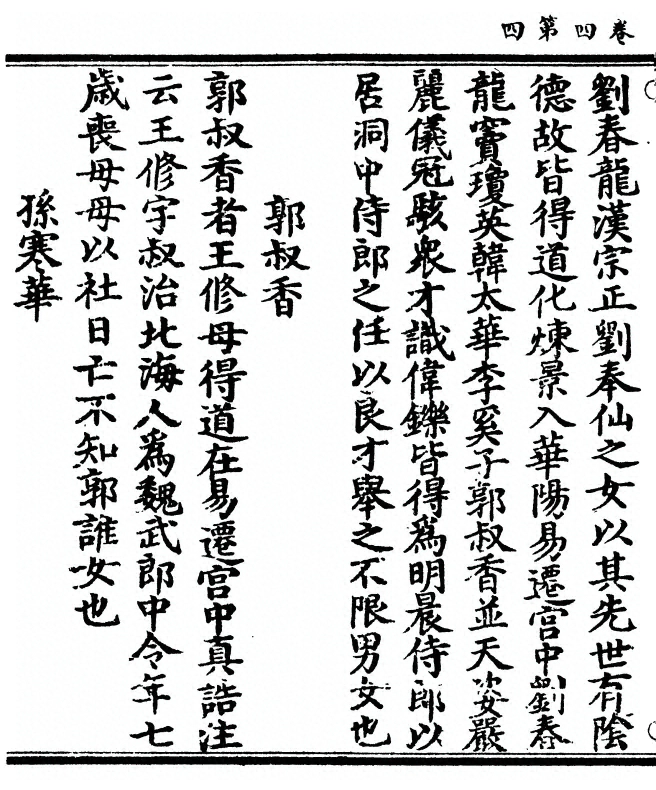 卷四第四
劉春龍漢宗正劉奉仙之女以其先世有陰
德故皆得道化煉景入華陽易遷宮中劉春
龍竇瓊英韓太華李奚子郭叔香並天姿嚴
麗儀冠駭衆才識偉鑠皆得爲明晨侍郎以
居洞中侍郎之任以良才舉之不限男女也
郭叔香
郭叔香者王修母得道在易遷宮中真誥注
云王修字叔治北海人爲魏武郎中令年七
歲喪母母以社日亡不知郭誰女也
孫寒華